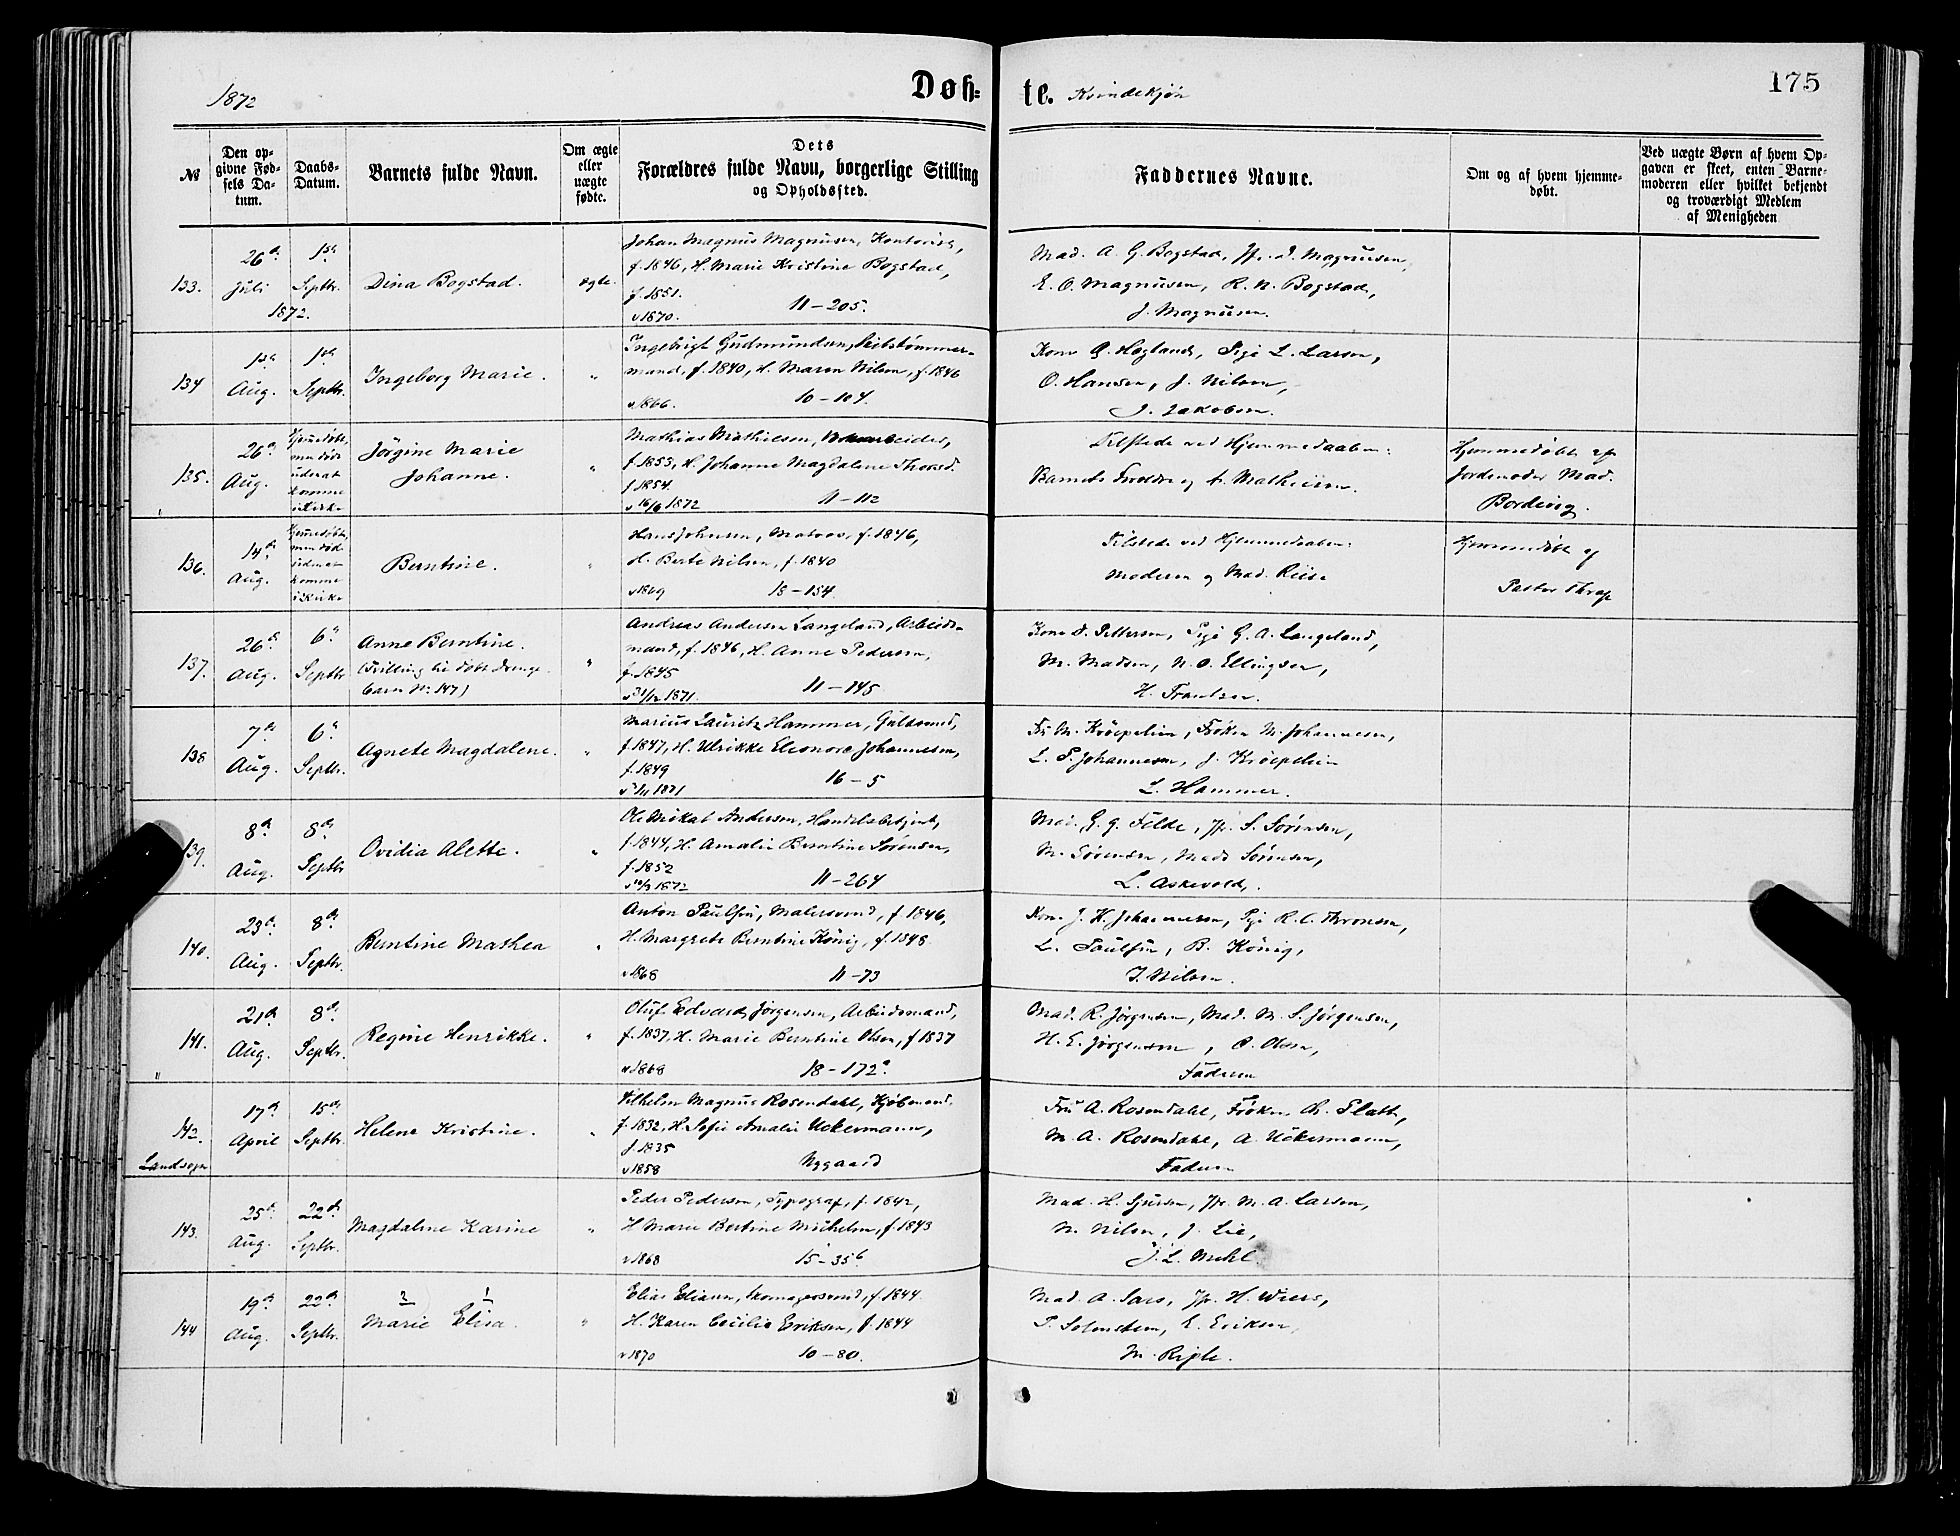 1872
Døb-
te. Kvindekjøn
175
№
Den op-
givne Fød-
sels Da-
tum.
Daabs-
Datum.
Barnets fulde Navn.
Om ægte
eller
uægte
fødte.
Dets
Forældres fulde Navn, borgerlige Stilling
og Opholdssted.
Faddernes Navne.
Om og af hvem hjemme-
døbt.
Ved uægte Børn af hvem Op-
gaven er skeet, enten Barne-
moderen eller hvilket bekjendt
og troværdigt Medlem
af Menigheden
133.
26de
Juli
1872.
1ste
Septbr.
Dina Bogstad.
ægte.
Johan Magnus Magnusen, Kontorist,
f. 1846, H. Marie Kristine Bogstad,
f. 1851.
v 1870. 11-205.
Mad. A. G. Bogstad, Jfr. J. Magnusen,
E. O. Magnusen, R. N. Bogstad,
J. Magnusen.
134
1ste
Aug.
1ste
Septbr.
Ingeborg Marie.
"
Ingebrigt Gudmundsen, Skibstømmer-
mand, f. 1840, H. Maren Nilsen, f. 1846
v 1866. 10-104.
Kone G. Høgland, Pige L. Larsen,
O. Hansen, J. Nilsen,
J. Jakobsen.
135.
26de
Aug.
Hjemmedøbt,
men døde
uden at
komme
i Kirke
Jørgine Marie
Johanne.
"
Mathias Mathiesen,
f. 1853, H. Johanne Magdalene
f 1854.
v 16/6 1872 11-112
Tilstede ved Hjemmedaaben:
Barnets Forældre og A. Mathiesen.
Hjemmedøbt af
Jordemoder Mad.
Bordevig.
136.
14de
Aug.
Hjemmedøbt,
men død
uden at
komme
i Kirke
Berntine.
"
Hans Johnsen, Matros, f. 1846,
H. Berte Nilsen, f. 1840
v 1869 18-154.
Tilstede ved Hjemmedaaben:
Moderen og Mad. Reise
Hjemmedøbt af
Pastor Thrap
137.
26de
Aug.
6te
Septbr
Anne Berntine.
(Tvilling til døbt Drenge-
barn No 147)
"
Andreas Andersen Langeland, Arbeids-
mand, f. 1846, H. Anne Pedersen,
f. 1845
v 31/12 1871. 11-145
Kone D. Pettersen, Pige G. A. Langeland,
M. Madsen, N. O. Ellingsen,
H. Frantsen.
138
7de
Aug.
6te
Septbr.
Agnete Magdalene.
"
Marius Lauritz Hammer, Guldsmed,
f. 1847, H. Ulrikke Eleonore Johannesen,
f. 1849
1871 16-5
Fru M. Krøepelien, Frøken M. Johannesen,
L. P. Johannesen, J. Krøepelien
L. Hammer.
139.
8de
Aug.
8de
Septbr
Ovidia Alette.
"
Ole Mikal Andersen, Handelsbetjent,
f. 1844, H. Amalie Berntine Sørensen,
f. 1852
1872 11-264
Mad. G. G. Felde, Jfr. S. Sørensen,
M. Sørensen, Mads Sørensen,
L. Askevold.
140.
23de
Aug.
8de
Septbr.
Berntine Mathea
"
Anton Paulsen, Malersvend, f. 1846,
H. Margrete Berntine König, f. 1848.
v 1868 11-73
Kone J. H. Johannesen, Pige R. C. Thronsen,
L. Paulsen, B. König,
J. Nilsen.
141.
21de
Aug.
8de
Septbr.
Regine Henrikke.
"
Oluf Edvard Jørgensen, Arbeidsmand,
f. 1837, H. Marie Berntine Olsen, f 1837
v 1868 18-172a
Mad. R. Jørgensen, Mad. M. S. Jørgensen,
H. E. Jørgensen, O. Olsen,
Faderen
142.
Landsogn
17de
April
15de
Septbr.
Helene Kristine.
"
Vilhelm Magnus Rosendahl, Kjøbmand,
f. 1832, H. Sofie Amalie Uckermann,
f. 1835
v 1858 Nygaard
Fru A. Rosendahl, Frøken Platt,
M. A. Rosendahl, A. Uckermann,
Faderen
143.
25de
Aug.
22de
Septbr.
Magdalene Karine
"
Peder Pedersen, Typograf, f. 1842,
H Marie Bertine Michelsen, f 1843
v 1868 15-35b
Mad. H. Sjursen, Jfr. M. A. Larsen,
N. Nilsen, J. Lie,
J. L. Mehl.
144
19de
Aug.
22de
Septbr.
2 1
Marie Elisa.
"
Elias Eliasen, Skomagersvend, f. 1844.
H. Karen Cecilie Eriksen, f. 1844
v 1870 10-80.
Mad. A. Sars, Jfr. H. Wiers,
P. Solemsteen, E. Eriksen,
M. Riple.